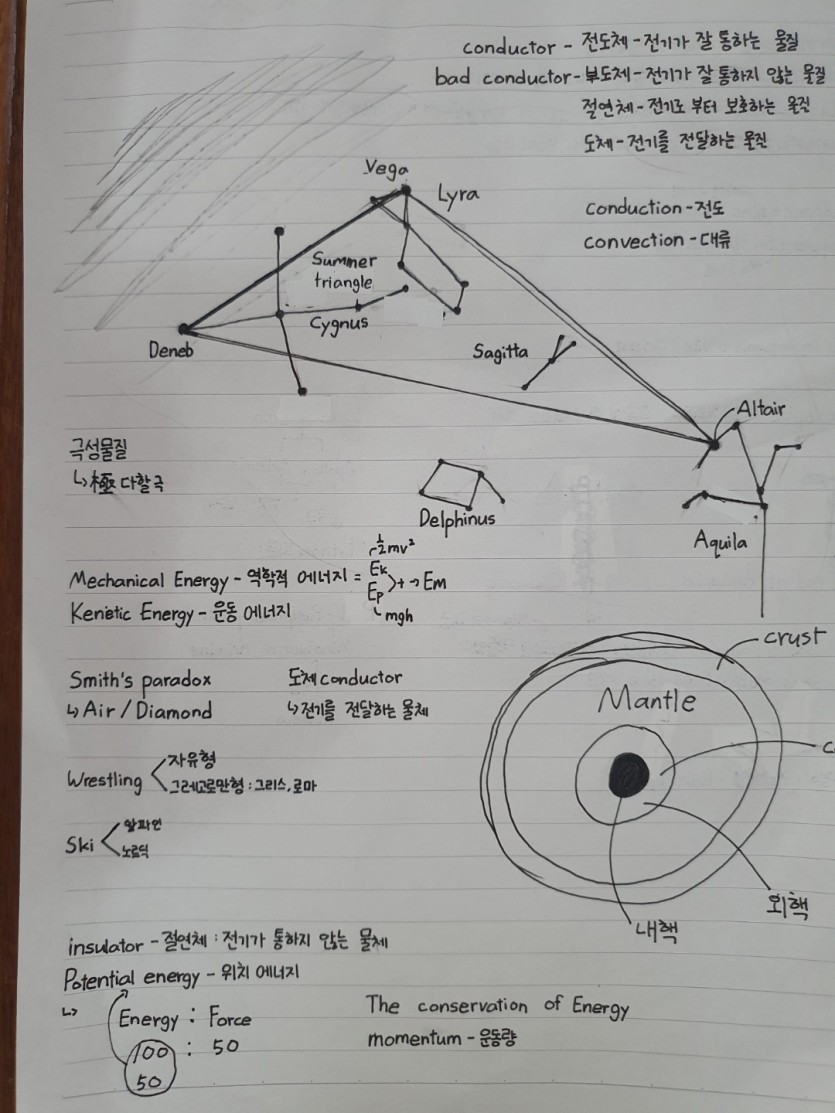 conductor - 전도체 - 전기가 잘 통하는 물질
bad conductor - 부도체 - 전기가 잘 통하지 않는 물질
절연체 - 전기로 부터 보호하는 물질
도체 - 전기를 전달하는 물질
Vega
Lyra
conduction - 전도
convection - 대류
Summer
triangle
Cygnus
Deneb
Sagitta
Altair
극성물질
↳ 極 다할 극
Delphinus
Aquila
½mv²
Mechanical Energy - 역학적 에너지 = Ek
Ep > + → Em
Kenetic Energy - 운동 에너지
mgh
crust
Smith's paradox
↳ Air / Diamond
도체 conductor
↳ 전기를 전달하는 물체
Mantle
c
Wrestling < 자유형
그레고로만형 : 그리스, 로마
Ski < 알파인
노르딕
외핵
내핵
insulator - 절연체 : 전기가 통하지 않는 물체
Potential energy - 위치 에너지
↳ Energy : Force
100 : 50
50
The conservation of Energy
momentum - 운동량